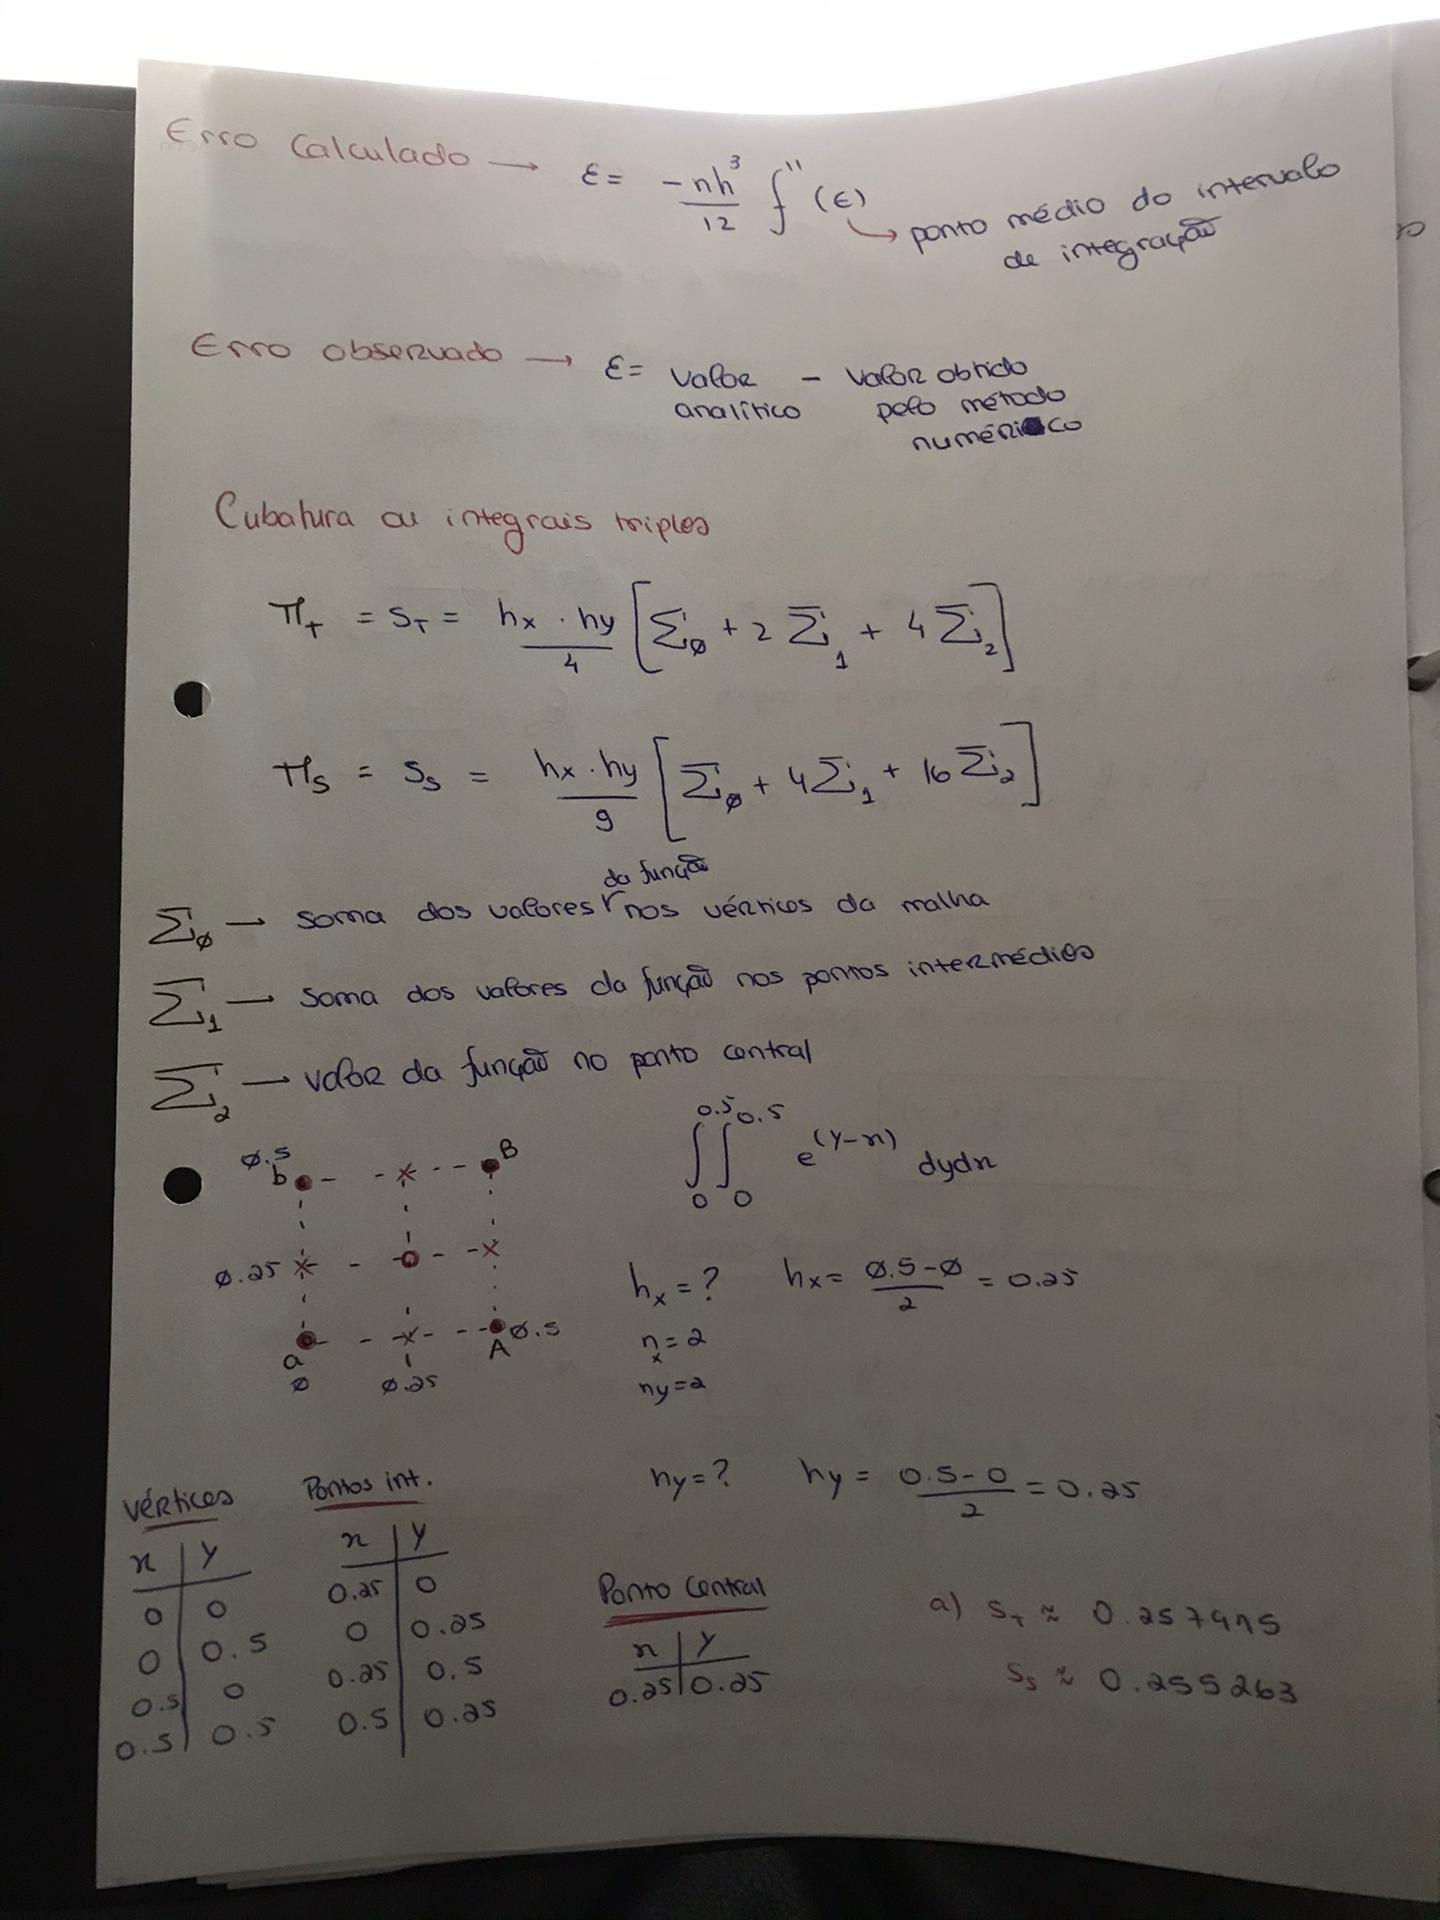 Erro Calculado → ε = -nh³/12 f''(ε)
↳ ponto médio do intervalo
de integração
Erro observado → ε = valor analítico - valor obtido pelo método numérico
Cubatura ou integrais triplos
π_T = S_T = hx . hy / 4 [Σ∅ + 2 Σ1 + 4 Σ2]
π_S = S_S = hx . hy / 9 [Σ∅ + 4 Σ1 + 16 Σ2]
da função
Σ∅ → soma dos valores nos vértices da malha
Σ1 → soma dos valores da função nos pontos intermédios
Σ2 → valor da função no ponto central
∫0^0.5 ∫0^0.5 e^(y-x) dydx
∅.5
b B
∅.25
a A ∅.5
∅ ∅.25
hx = ? hx = ∅.5-∅ / 2 = 0.25
nx = 2
ny = 2
hy = ? hy = 0.5-0 / 2 = 0.25
Vértices
x | y
0 | 0
0 | 0.5
0.5 | 0
0.5 | 0.5
Pontos int.
x | y
0.25 | 0
0 | 0.25
0.25 | 0.5
0.5 | 0.25
Ponto Central
x | y
0.25 | 0.25
a) S_T ≈ 0.257915
S_S ≈ 0.255263